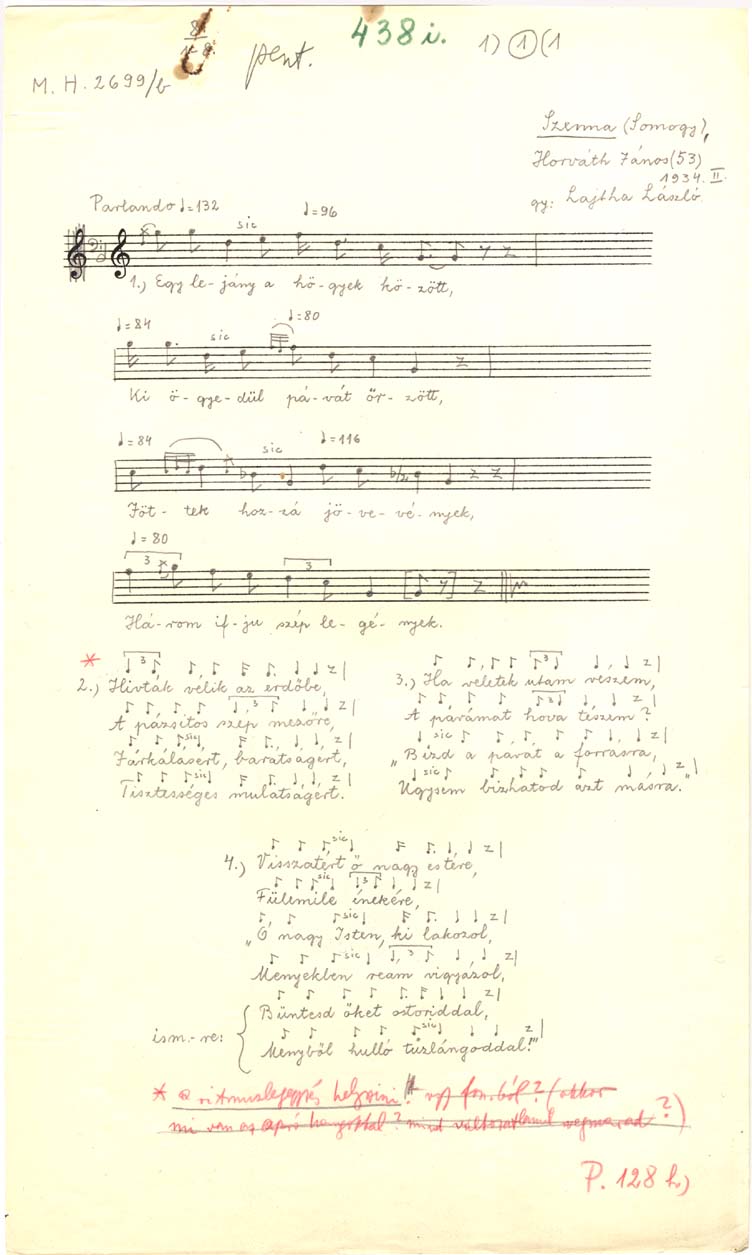 438 i. 1) 1 (1
pent.
M. H. 2699/b
Szenna (Somogy),
Horváth János (53)
1934. II.
gy: Lajtha László.
Parlando ♩=132 sic ♩=96
1.) Egy le- jány a hö- gyek kö- zött,
♩=84 sic ♩=80
Ki ö- gye- dül pá- vát őr- zött,
♩=84 sic ♩=116
Jöt- tek hoz- zá jö- ve- vé- nyek,
♩=80
3 3
Há- rom if- ju szép le- gé- nyek.
*
2.) Hivták vélik az erdőbe,
A pázsitos szép mezőre,
sic
Fárkálásért, barátságért,
sic
Tisztességes mulatságért.
3.) Ha veletek utam veszem,
A pávámat hova teszem?
sic
„Bízd a pávát a forrásra,
sic
Ugysem bizhatod azt másra."
sic
4.) Visszatért ő nagy estére,
sic
Fülemile énekére,
sic
„O nagy Isten, ki lakozol,
sic
Menyekben reám vigyázol,
Büntesd őket ostoriddal,
ism.-re: sic
Menyből hulló tűzlángoddal!"
* a ritmuslejegyzés helyzini!! fon.ból? (akkor
mi van az apró hangokkal? mind változatlanul megmarad?)
P. 128 h)